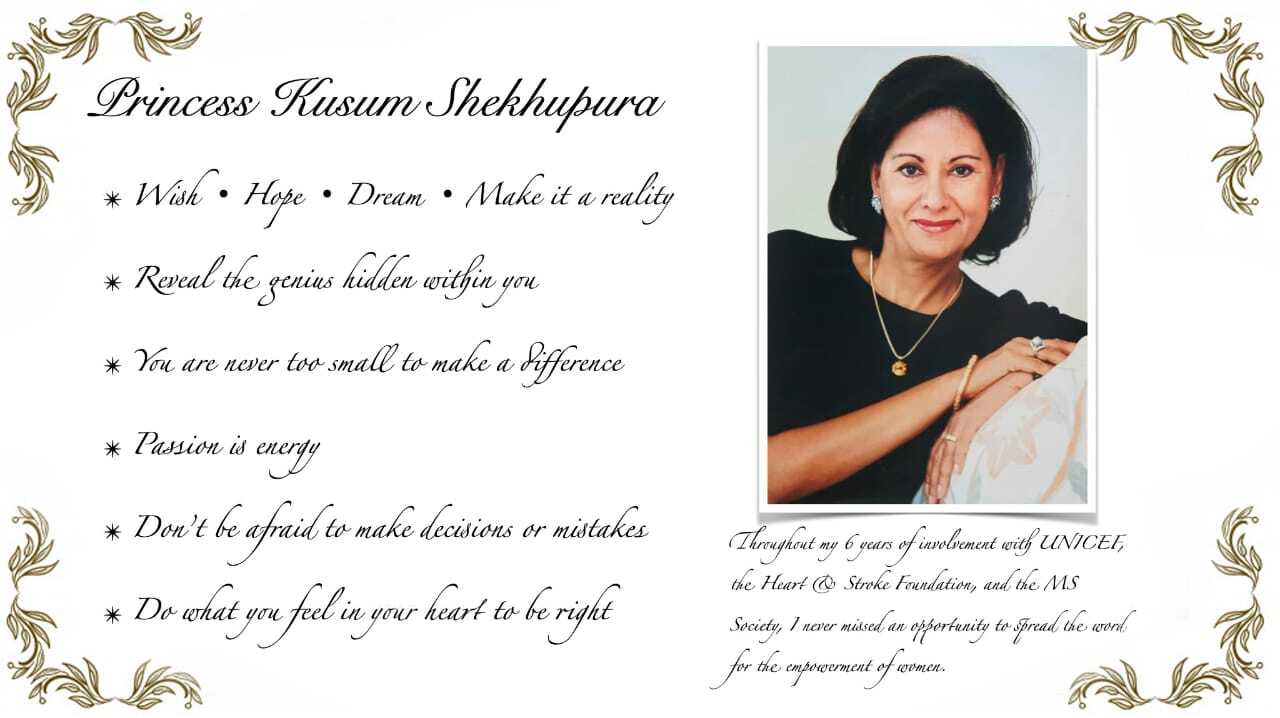 Princess Kusum Shekhupura
✴ Wish • Hope • Dream • Make it a reality
✴ Reveal the genius hidden within you
✴ You are never too small to make a difference
✴ Passion is energy
✴ Don't be afraid to make decisions or mistakes
✴ Do what you feel in your heart to be right
Throughout my 6 years of involvement with UNICEF,
the Heart & Stroke Foundation, and the MS
Society, I never missed an opportunity to spread the word
for the empowerment of women.